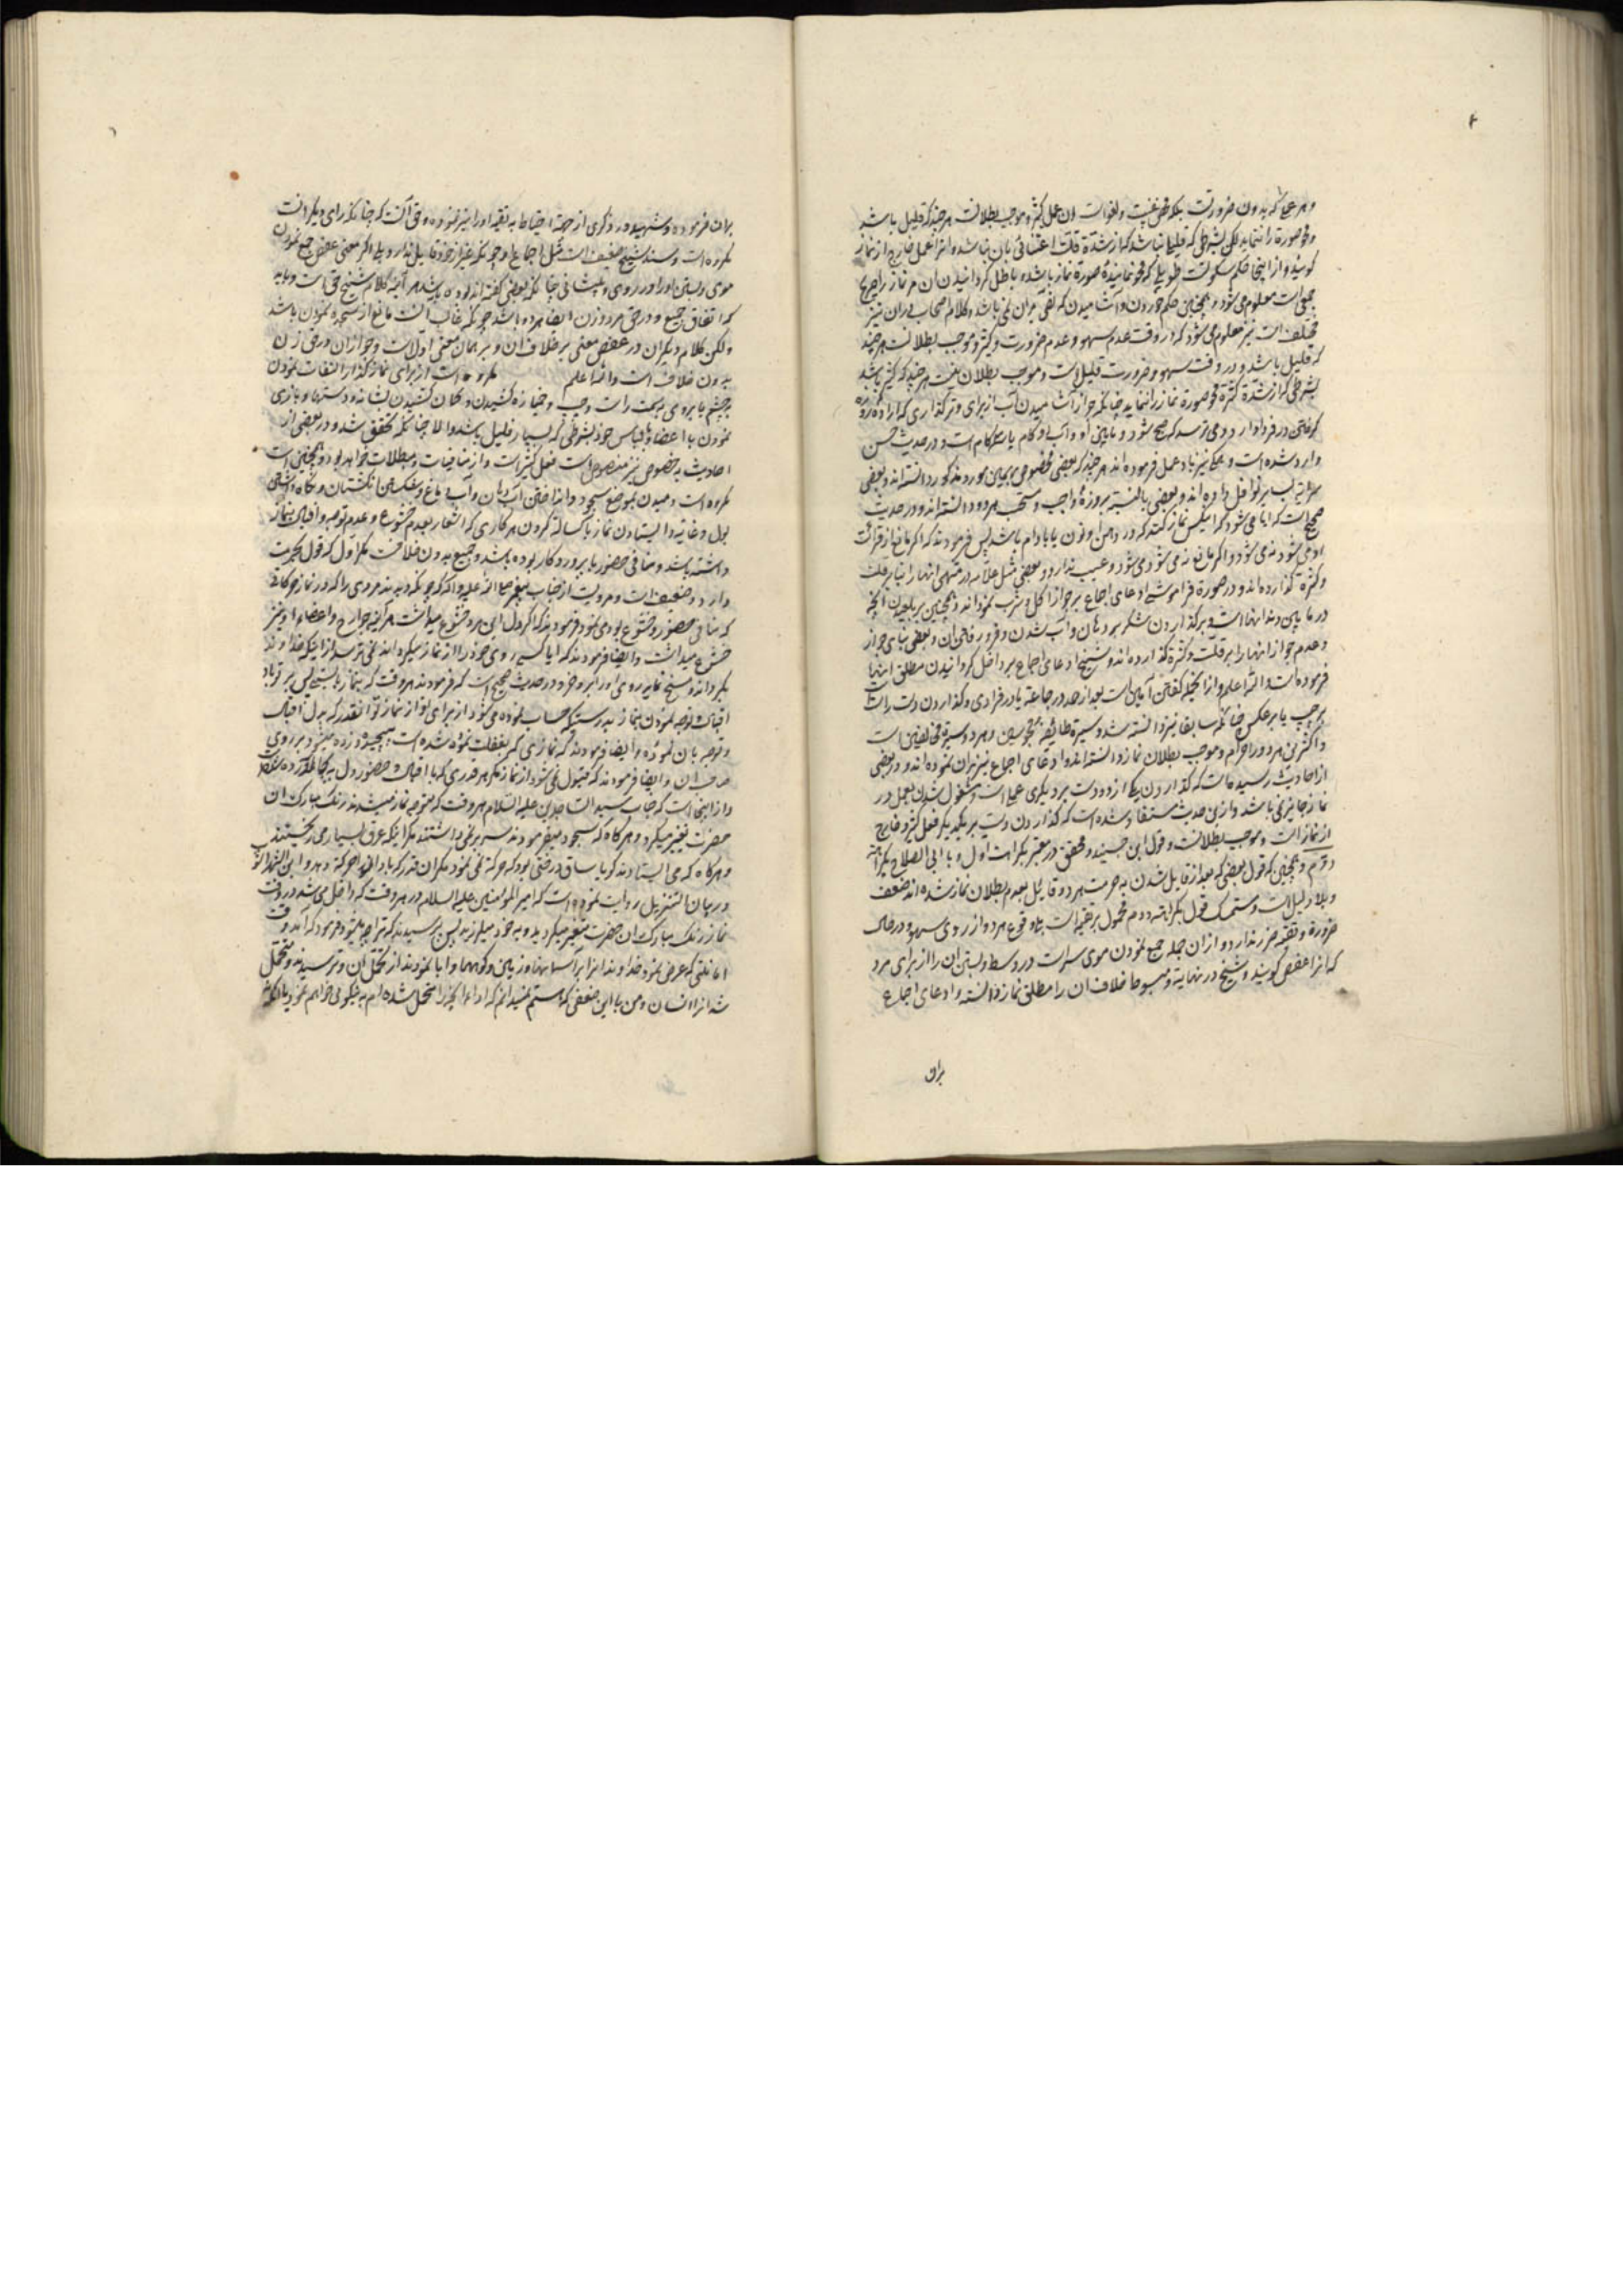 و هر عملی که بدون ضرورت
و محو صورة را ننماید لکن بشرطی که قلیلی نباشد که از شدّة قلّت اعتنائی بان نباشد و انرا عمل خارج از نماز
کویند و از اینجا حکم سکوت طویل که محو نمایندهٔ صورة نماز باشد و باطل کردانیدن ان مر نماز را
معلوم می شود و همچنین حکم خوردن و آشامیدن که نفی بران نمی باشد و کلام اصحاب در ان نیز
مختلف است نیز معلوم می شود که در وقت عدم سهو و عدم ضرورت و کثیر و موجب بطلانست هر چند
که قلیل باشد و در وقت سهو و ضرورت قلیل است و موجب بطلان نیست هر چند که کثیر باشد
بشرطی که از شدّة کثرة محو صورة نماز را ننماید چنانکه جواز آشامیدن آب از برای وتر کذاری که اراده روزه
که صبح شود و مابین او و آب دو کام یا سه کام است و در حدیث حسن
وارد شده است و همکی نیز باو عمل فرموده اند هر چند که بعضی مخصوص بهمین مورد مذکور دانسته اند و بعضی
سرایة بسایر نوافل داده اند و بعضی بالنسبة بروزهٔ واجب و مستحب هر دو دانسته اند و در حدیث
صحیح است که ایا می شود که کسی نماز کند که در دهن او نان یا بادام باشد پس فرمودند که اکر مانع از قرائت
او می شود نه می شود و اکر مانع نه می شود می شود و عیب ندارد و بعضی مثل علّامه در منتهی انها را بنا بر قلّت
و کثرة کذارده اند و در صورة فراموشی ادعای اجماع بر جواز اکل و شرب نموده اند و همچنین بر بلعیدن آنچه
در مابین دندانها است و بر کذاردن شکر در دهان و آب شدن و فرو رفتن ان و بعضی بنای جواز
و عدم جواز اینها را بر قلّت و کثرة کذارده اند و شیخ ادعای اجماع بر داخل کردانیدن مطلق اینها
فرموده است و الله اعلم و از آنجمله کفتن آمین است بعد از حمد در جماعة یا در فرادی و کذاردن دست راست
بر چپ یا بر عکس چنانکه سابقا نیز دانسته شد و سیرة طائفهٔ مجوس و هر دو سیرة مخالفین است
و اکثری هر دو را حرام و موجب بطلان نماز دانسته اند و ادعای اجماع نیز بران نموده اند و در بعضی
از احادیث رسیده است که کذاردن یکی از دو دست بر دیکری عملی است و مشغول شدن بعمل در
نماز جایز نمی باشد و از این حدیث مستفاد شده است که کذاردن دست بر یکدیکر فعل کثیر و خارج
از نماز است و موجب بطلانست و قول ابن جنید و محقق در معتبر بکراهت اول و با ابی الصلاح بکراهة
دوم و همچنین که قول بعضی که بعد از قایل شدن به حرمت هر دو قایل بعدم بطلان نماز شده اند ضعیف
و بلا دلیل است و متمسک قول بکراهة دوم محمول بر تقیه است بلی وقوع هر دو از روی سهو و در حال
ضرورة و تقیه ضرر ندارد و از ان جمله جمع نمودن موی سر است در وسط و بستن ان را از برای مرد
که انرا عقص کویند و شیخ در نهایة و مبسوط خلاف ان را مبطل نماز دانسته و ادعای اجماع
بران
بران فرموده و شهید در ذکری از جهة احتیاط به تقیه او را نیز نموده و حق آنست که چنانکه رای دیکرانست
مکروه است و سند شیخ ضعیف است مثل اجماع او چونکه غیر از خود قایل ندارد بلی اکر معنی عقص جمع نمودن
موی و بستن او را در روی و پیشانی چنانکه بعضی کفته اند بوده باشد هر آینه کلام شیخ حق است و باید
که اتفاق جمیع و در حق مرد و زن ایضا بوده باشد چونکه غالب آنست مانع از سجده نمودن باشد
ولکن کلام دیکران در عقص معنی بر خلاف ان و بر همان معنی اول است و جواز ان در حق زن
بدون خلاف است و الله اعلم مکروه است از برای نماز کذار التفات نمودن
بچشم یا بروی بسمت راست و چپ و خمیازه کشیدن و کمان کشیدن شانه و دستها و بازی
نمودن با اعضا و با لباس خود بشرطی که بسیار قلیل باشد و الا چنانکه تحقق شد و در بعضی از
احادیث به خصوص نیز منصوص است فعل کثیر است و از منافیات و مبطلات خواهد بود و همچنین است
مکروه است دمیدن بموضع سجود و انداختن آب دهان و آب دماغ و شکستن انکشتان و نکاه داشتن
بول و غایط و ایستادن نماز با کسالة و کردن هر کاری که اشعار بعدم خشوع و عدم توجه و اقبال بنماز
داشته باشد و منافی حضور با پروردکار بوده باشد و جمیع بدون خلافست مکر اول که قول بحرمت
دارد و ضعیف است و مرویست از جناب پیغمبر صلّی الله علیه و آله که چونکه دیدند مردی را که در نماز حرکاتی
که منافی حضور و خشوع بود می نمود فرمودند که اکر دل این مرد خشوع میداشت هر آینه جوارح و اعضاء او نیز
خشوع میداشت و ایضا فرمودند که ایا کسی روی خود را از نماز میکرداند نمی ترسد از اینکه خداوند
بکرداند و مسخ نماید روی او را بروی خر و در حدیث صحیح است که فرمودند هر وقت که بنماز بایستی پس بر تو باد
اقبال و توجه نمودن بنماز بدرستیکه حساب نموده می شود از برای تو از نماز تو آنقدر که بدل اقبال
و توجه بان نموده و ایضا فرمودند که نمازی که بغفلت نموده شده است پیچیده و زده میشود بر روی
صاحب ان و ایضا فرمودند که قبول نمی شود از نماز مکر هر قدری که با اقبال و حضور دل بجا آورده شود
و از اینجا است که جناب سید الساجدین علیه السلام هر وقت که متوجه نماز میشدند رنک مبارک ان
حضرت تغییر میکرد و هر کاه که سجود میفرمودند سر بر نمی داشتند مکر اینکه عرق بسیار می ریختند
و هر کاه که می ایستادند کویا ساق درختی بود که حرکة نمی نمود مکر ان قدر که باد او را حرکة دهد و ابن شهر اشوب
در بیان التنزیل روایت نموده است که امیر المؤمنین علیه السلام در هر وقت که داخل می شد در وقت
نماز رنک مبارک ان حضرت متغیر میکردید و به خود میلرزید پس پرسیدند که ترا چه میشود فرمود که آمد وقت
امانتی که عرض نمود خداوند انرا بر آسمانها و زمین و کوهها و ابا نمودند از تحمّل ان و ترسیدند و متحمّل
شد انرا انسان و من با این ضعفی که هستم نمیدانم که اداء آنچه را متحمّل شده ام به نیکوئی خواهم نمود یا نه